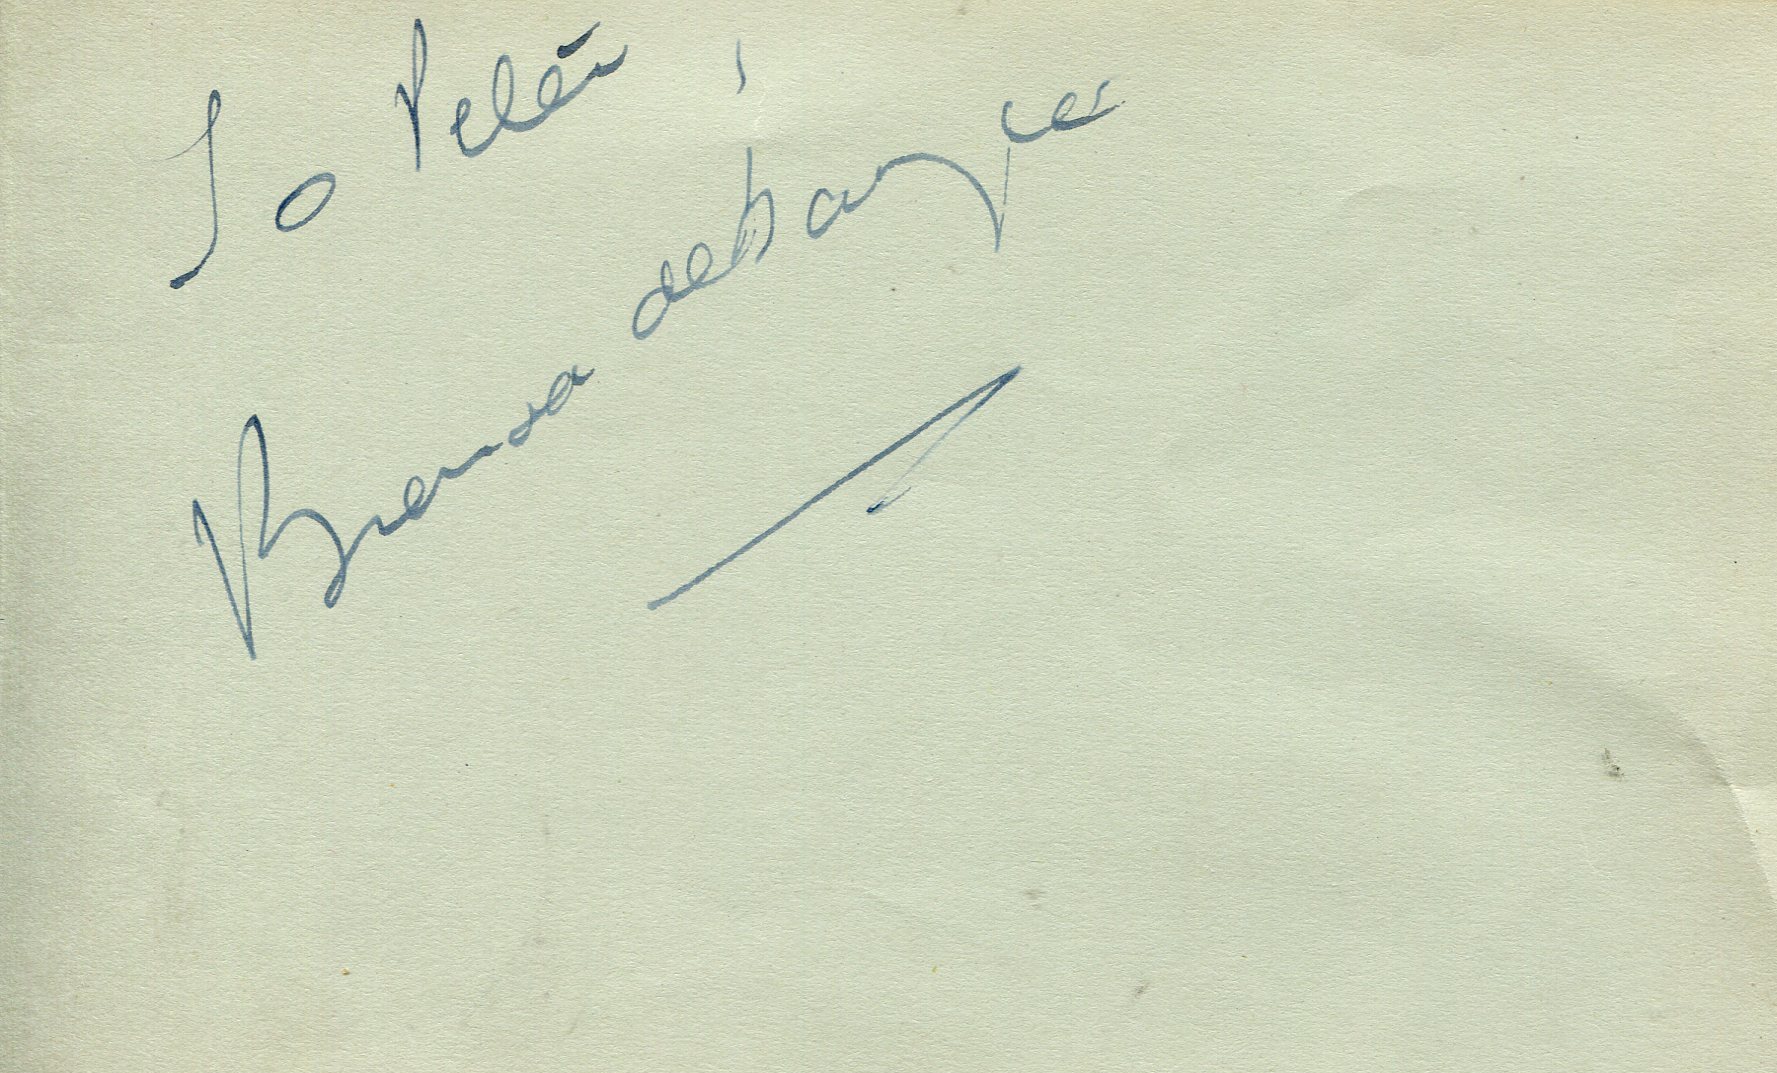 To Peter
Brenda de Banzie